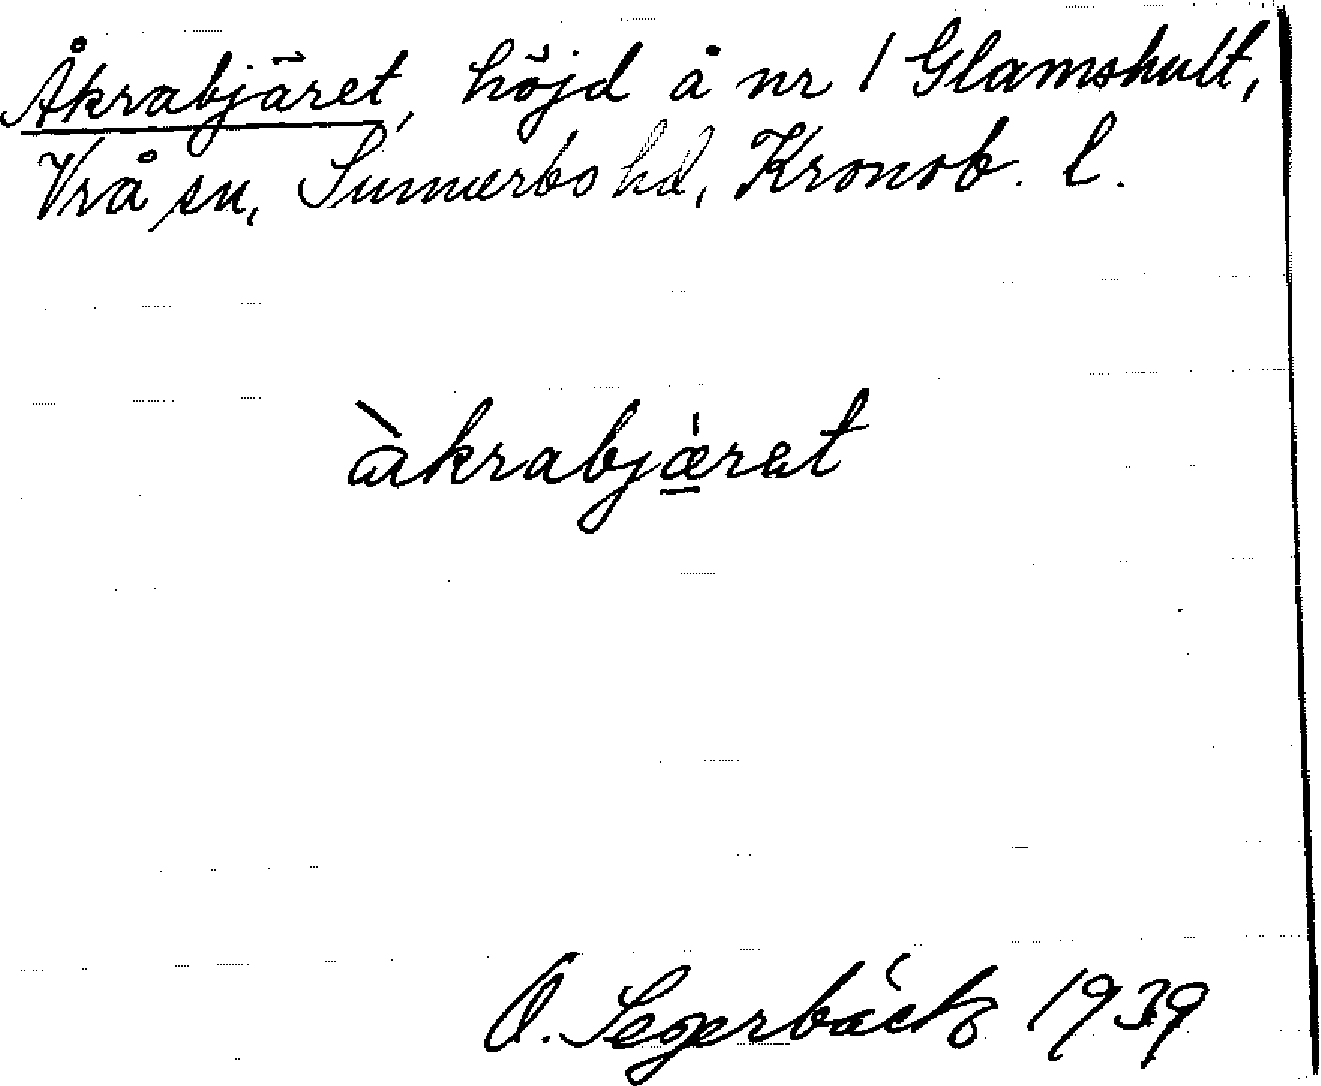 Åkrabjäret, höjd å nr 1 Glamshult,
Vrå sn, Sunnerbo hd, Kronob. l.
àkrabjǽ̱rat
O. Segerbäck 1939